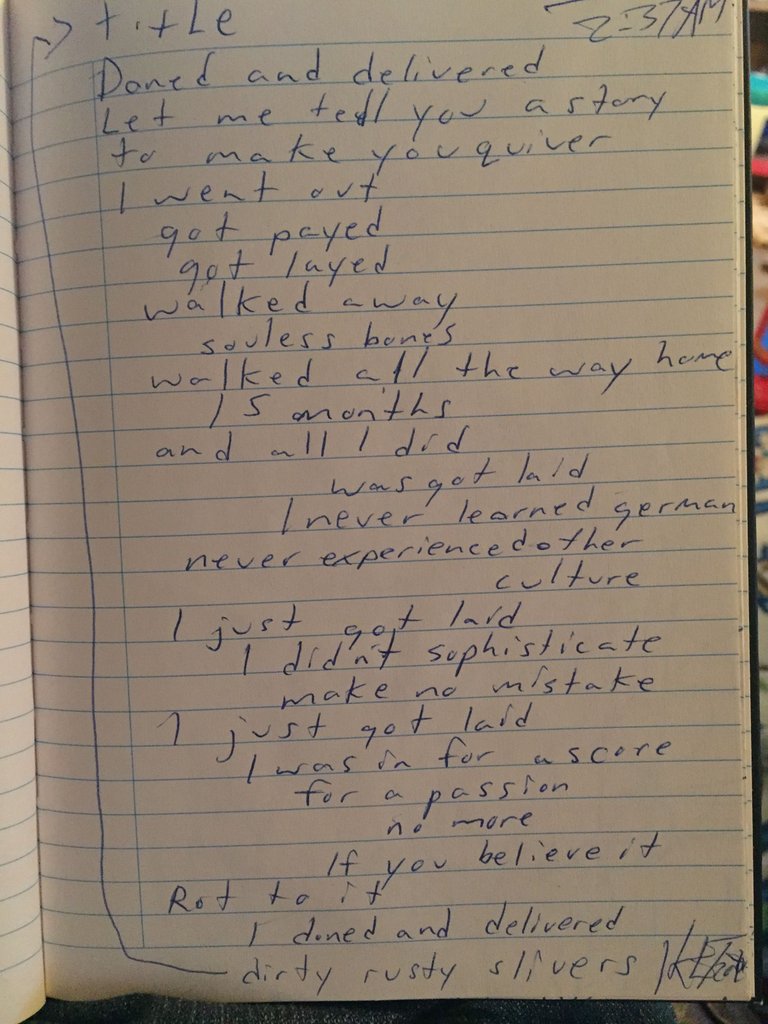 title
2:37AM
Doned and delivered
Let me tell you a story
to make you quiver
I went out
got payed
got layed
walked away
souless bones
walked all the way home
15 months
and all I did
was got laid
I never learned german
never experienced other
culture
I just got laid
I didn't sophisticate
make no mistake
I just got laid
I was in for a score
for a passion
no more
If you believe it
Rot to it
I doned and delivered
dirty rusty slivers